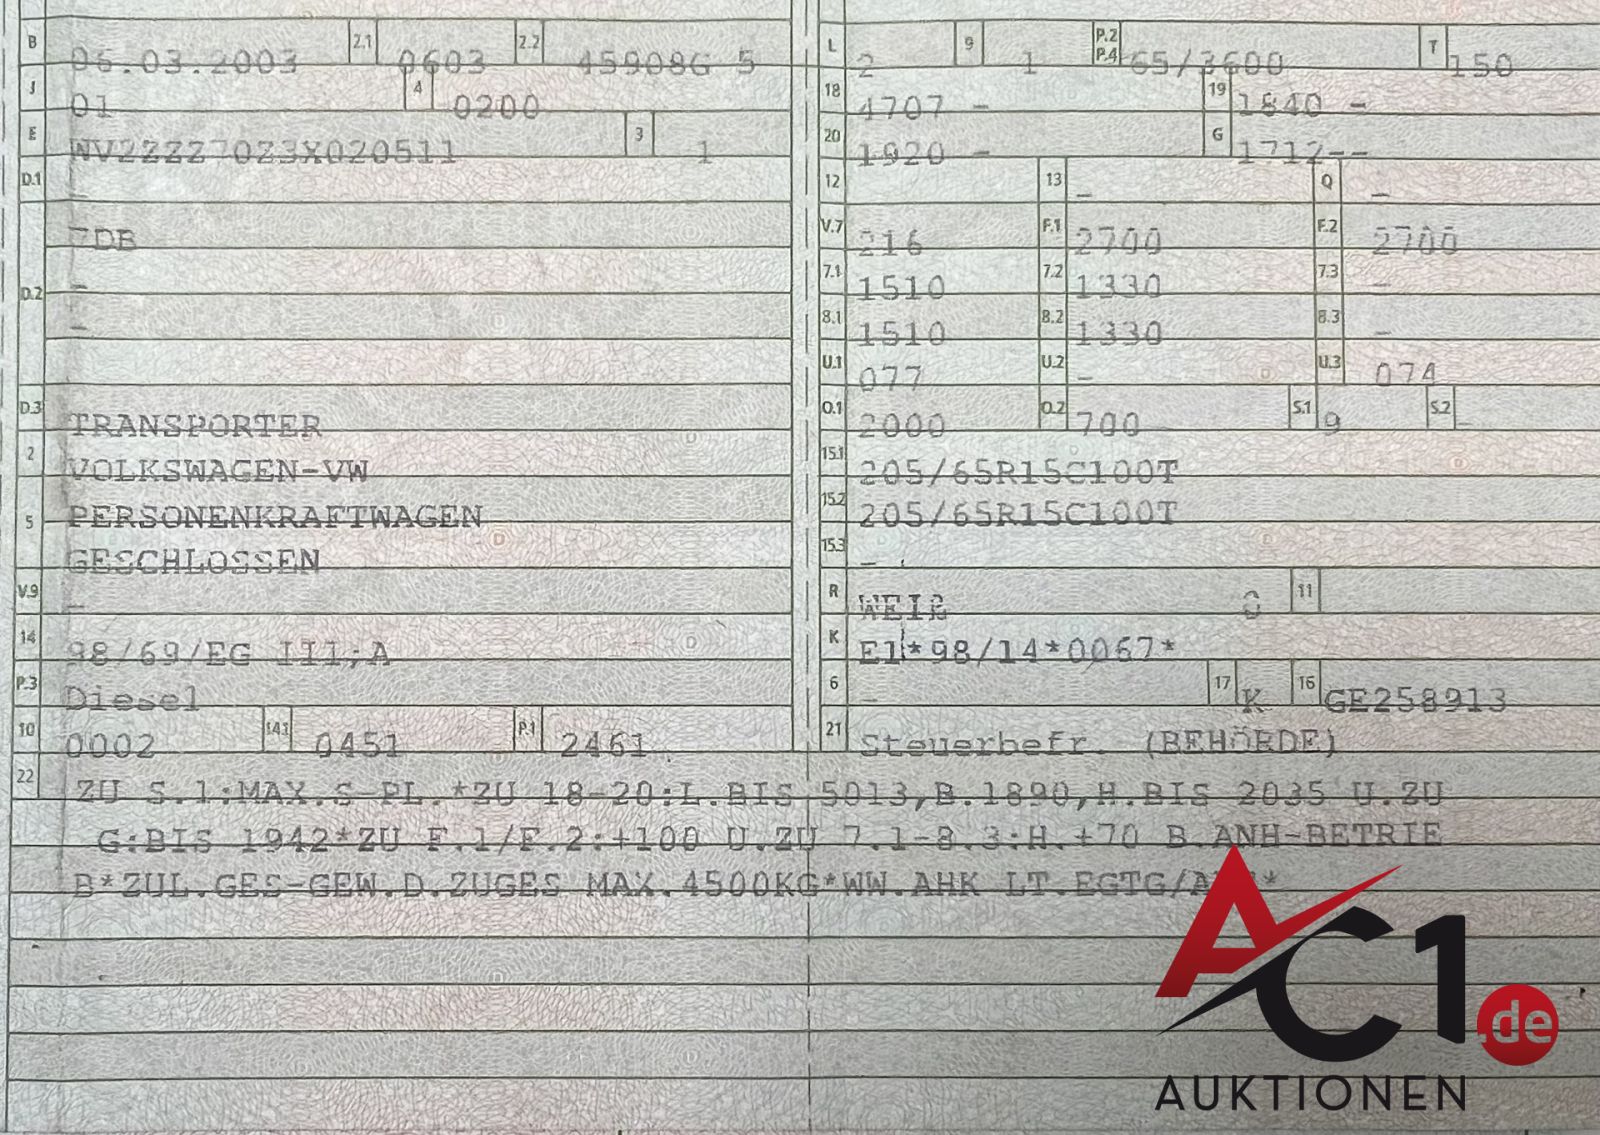 B 06.03.2003 2.1 0603 2.2 45908G 5
J 01 4 0200
E WV2ZZZ70Z3X020511 3 1
D.1 -
7DB
D.2 -
-
D.3 TRANSPORTER
2 VOLKSWAGEN-VW
5 PERSONENKRAFTWAGEN
GESCHLOSSEN
V.9 -
14 98/69/EG III;A
P.3 Diesel
10 0002 14.1 0451 P.1 2461
L 2 9 1 P.2 P.4 65/3600 T 150
18 4707 - 19 1840 -
20 1920 - G 1712--
12 13 - Q -
V.7 216 F.1 2700 F.2 2700
7.1 1510 7.2 1330 7.3 -
8.1 1510 8.2 1330 8.3 -
U.1 077 U.2 - U.3 074
O.1 2000 O.2 700 S.1 9 S.2 -
15.1 205/65R15C100T
15.2 205/65R15C100T
15.3 -
R WEIß 0 11
K E1*98/14*0067*
6 - 17 K 16 GE258913
21 Steuerbefr. (BEHÖRDE)
22 ZU S.1:MAX.S-PL.*ZU 18-20:L.BIS 5013,B.1890,H.BIS 2035 U.ZU
G:BIS 1942*ZU F.1/F.2:+100 U.ZU 7.1-8.3:H.+70 B.ANH-BETRIE
B*ZUL.GES-GEW.D.ZUGES MAX.4500KG*WW.AHK LT.
AC1.de
AUKTIONEN